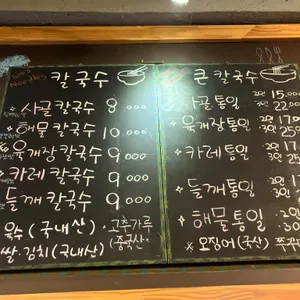 Noodles 칼국수
사골칼국수 8.000
해물칼국수 10.000
육개장칼국수 9.000
카레칼국수 9.000
들깨칼국수 9.000
육수(국내산) ·고추가루
쌀.김치(국내산) (중국산)
큰칼국수
사골통일 2인 15.000
3인 22.000
육개장통일 2인 17
카레통일 2인 17
들깨통일 2인 17
해물통일 2인
오징어(국산)